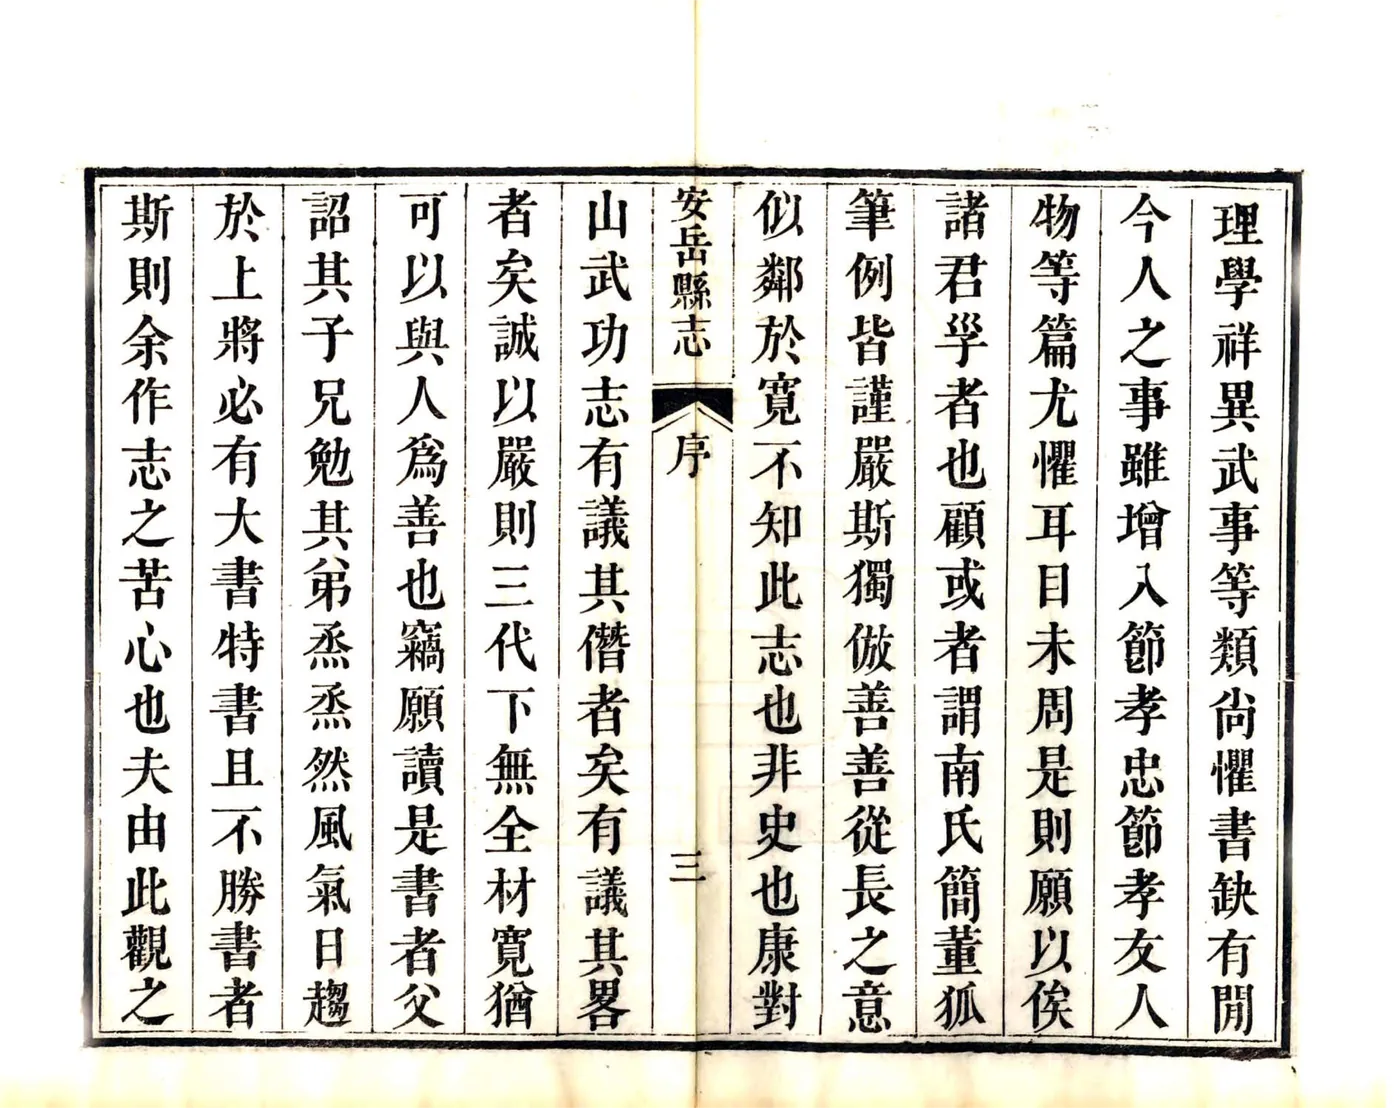 理學祥異武事等類尙懼書缺有閒
今人之事雖增入節孝忠節孝友人
物等篇尤懼耳目未周是則願以俟
諸君子者也顧或者謂南氏簡董狐
筆例皆謹嚴斯獨倣善善從長之意
似鄰於寬不知此志也非史也康對
安岳縣志
序
三
山武功志有議其僭者矣有議其畧
者矣誠以嚴則三代下無全材寬猶
可以與人爲善也竊願讀是書者父
詔其子兄勉其弟烝烝然風氣日趨
於上將必有大書特書且不勝書者
斯則余作志之苦心也夫由此觀之